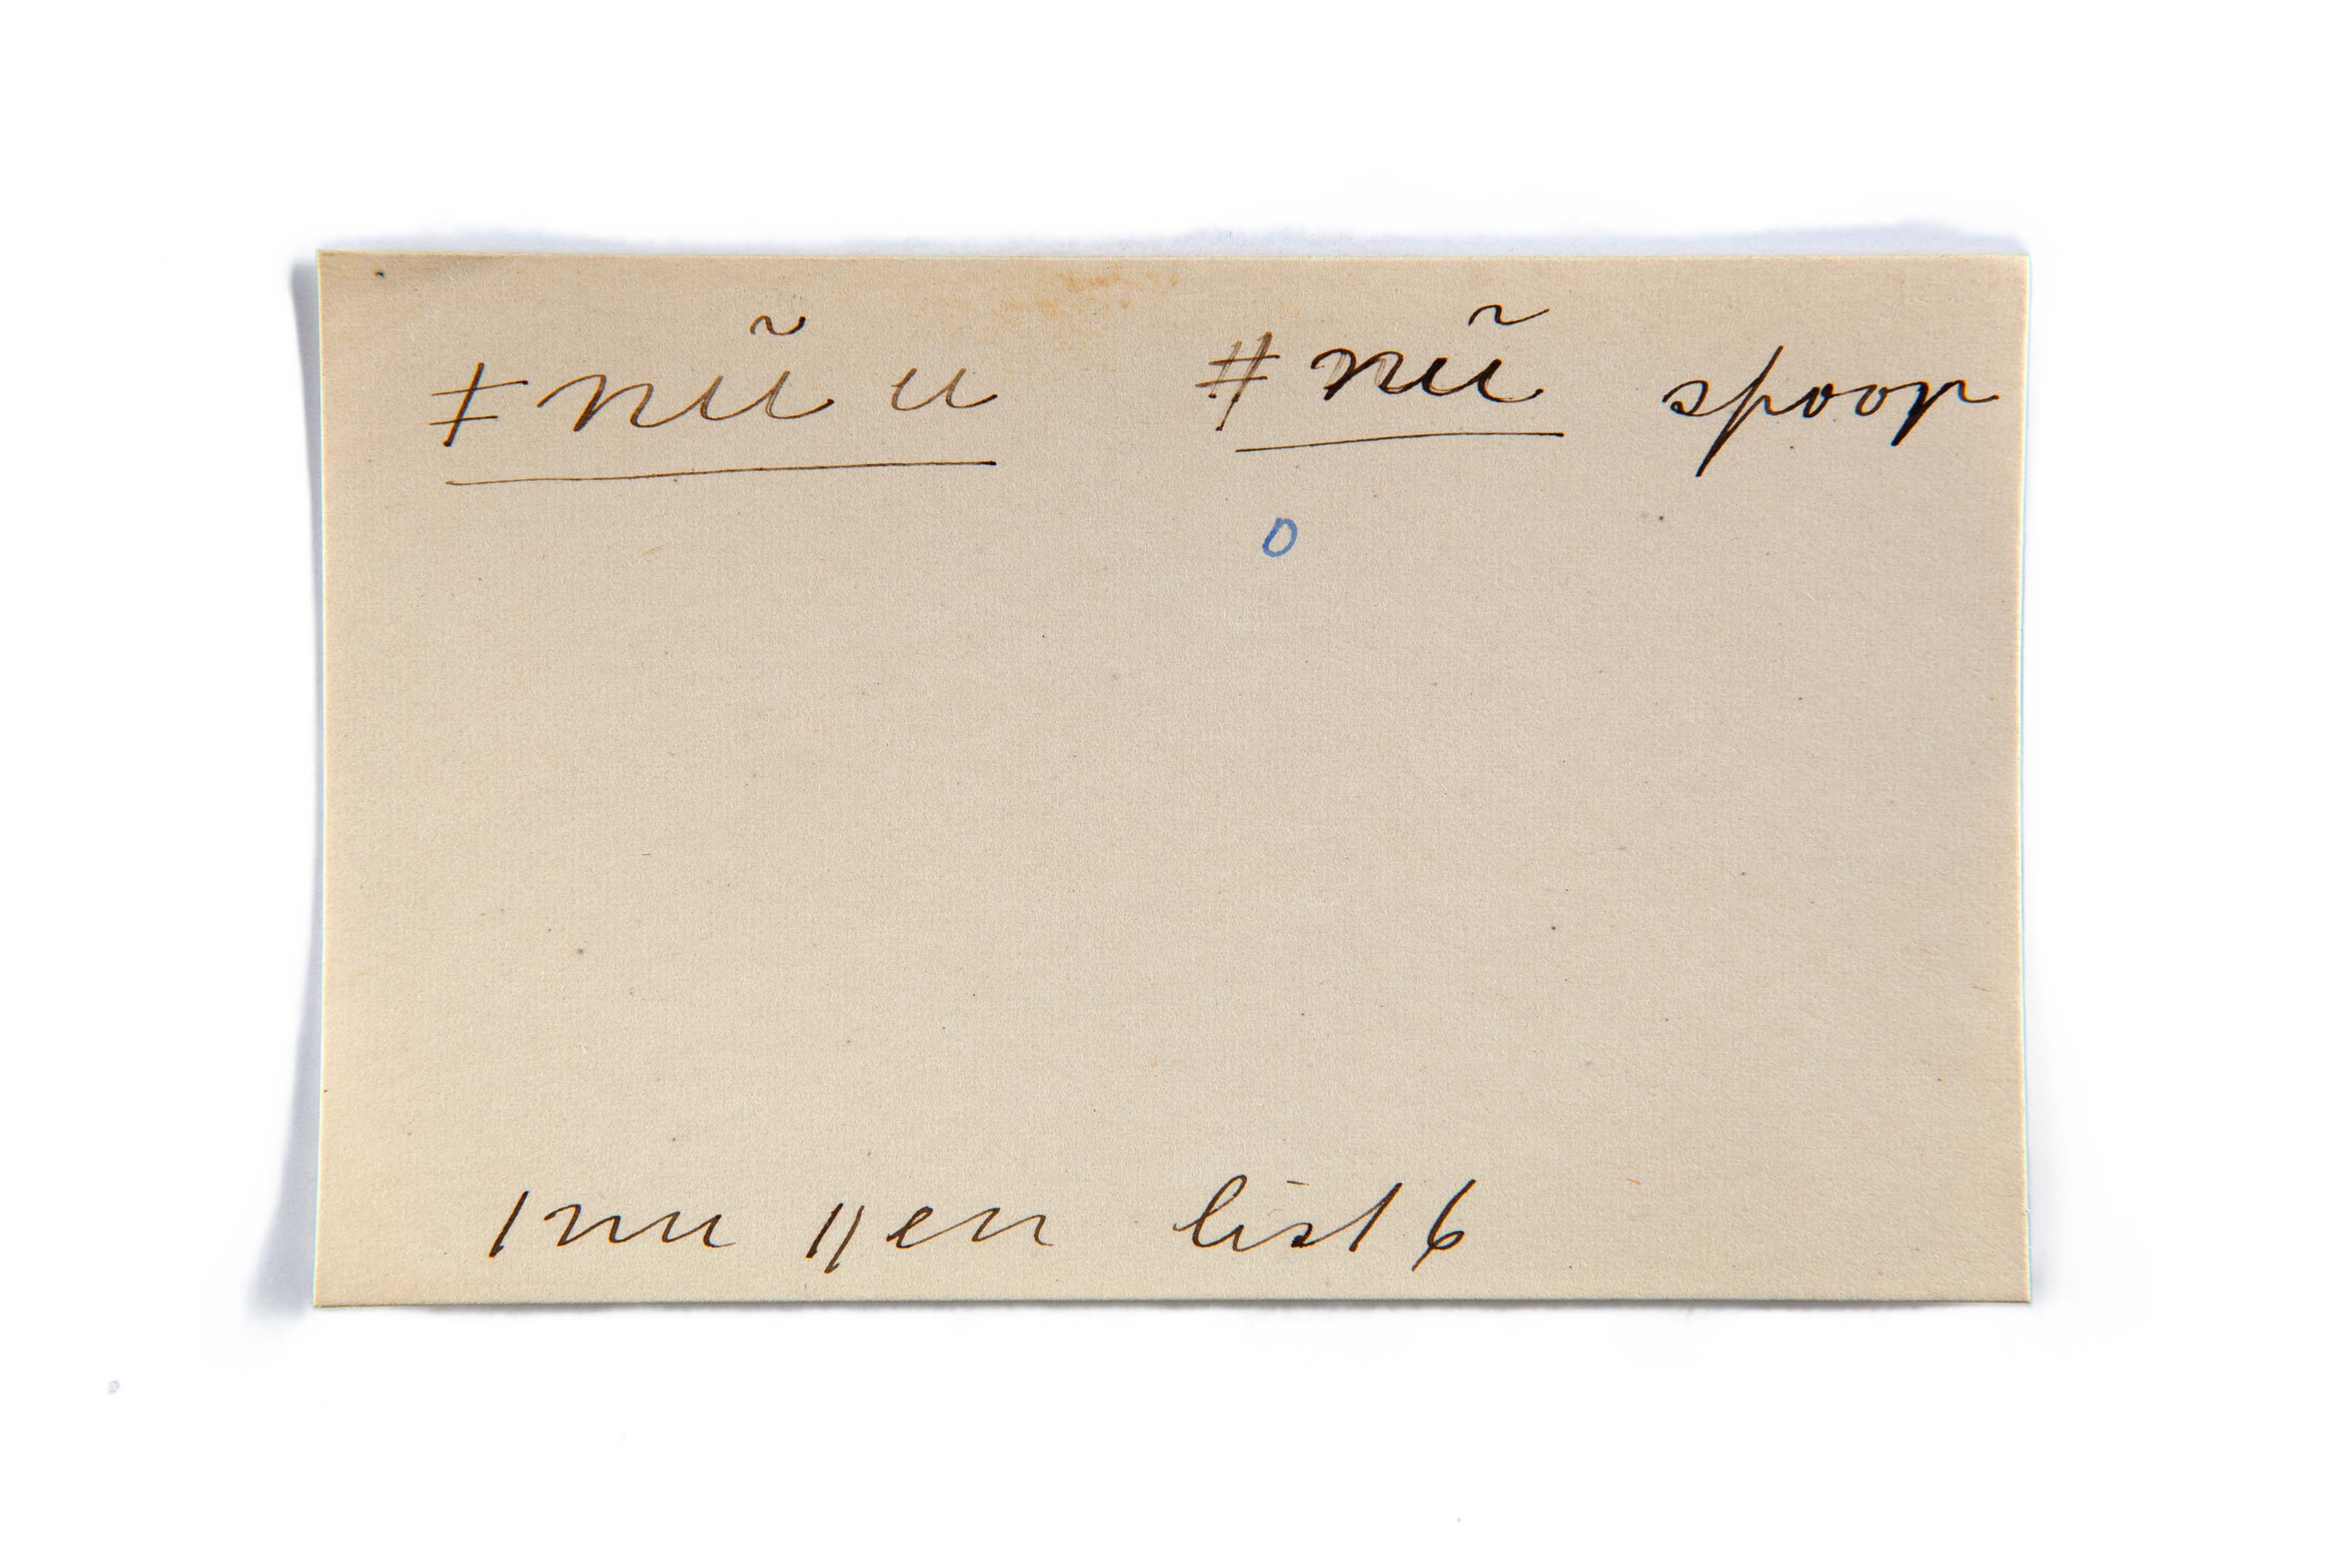 ǂnũ u ǂnũ spoor
o
|nu ||en list 6